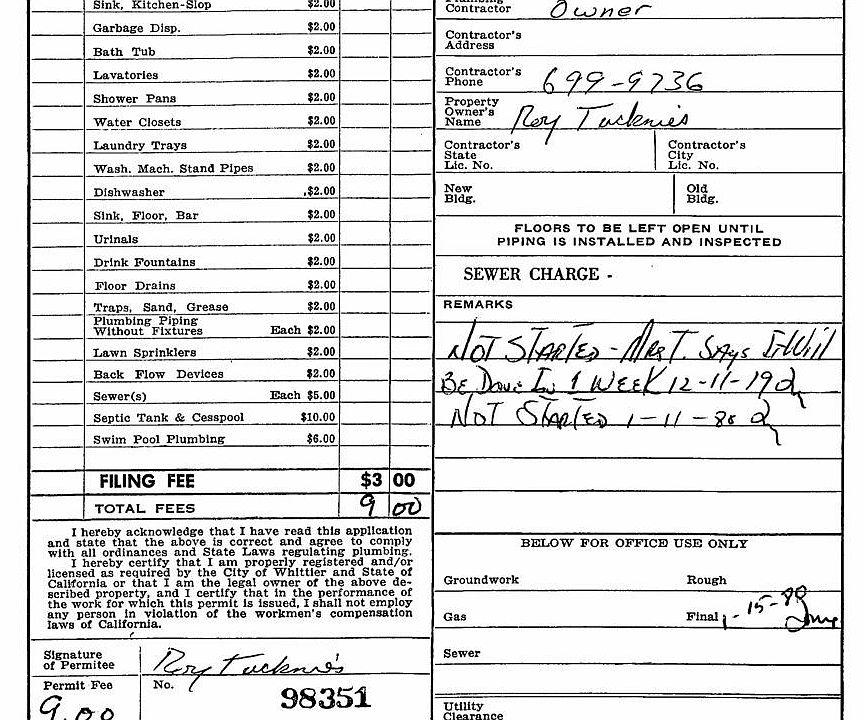 Sink, Kitchen-Slop $2.00
Garbage Disp. $2.00
Bath Tub $2.00
Lavatories $2.00
Shower Pans $2.00
Water Closets $2.00
Laundry Trays $2.00
Wash. Mach. Stand Pipes $2.00
Dishwasher $2.00
Sink, Floor, Bar $2.00
Urinals $2.00
Drink Fountains $2.00
Floor Drains $2.00
Traps, Sand, Grease $2.00
Plumbing Piping
Without Fixtures Each $2.00
Lawn Sprinklers $2.00
Back Flow Devices $2.00
Sewer(s) Each $5.00
Septic Tank & Cesspool $10.00
Swim Pool Plumbing $6.00
FILING FEE $3 00
TOTAL FEES 9 00
I hereby acknowledge that I have read this application
and state that the above is correct and agree to comply
with all ordinances and State Laws regulating plumbing.
I hereby certify that I am properly registered and/or
licensed as required by the City of Whittier and State of
California or that I am the legal owner of the above de-
scribed property, and I certify that in the performance of
the work for which this permit is issued, I shall not employ
any person in violation of the workmen's compensation
laws of California.
Signature
of Permitee Roy Tucknies
Permit Fee
9.00
No. 98351
Contractor Owner
Contractor's
Address
Contractor's
Phone 699-9736
Property
Owner's
Name Roy Tucknies
Contractor's
State
Lic. No.
Contractor's
City
Lic. No.
New
Bldg.
Old
Bldg.
FLOORS TO BE LEFT OPEN UNTIL
PIPING IS INSTALLED AND INSPECTED
SEWER CHARGE -
REMARKS
NOT STARTED - MRS T. SAYS IT WILL
BE DONE IN 1 WEEK 12-11-79
NOT STARTED 1-11-80
BELOW FOR OFFICE USE ONLY
Groundwork
Rough
Gas
Final 1-15-80
Sewer
Utility
Clearance